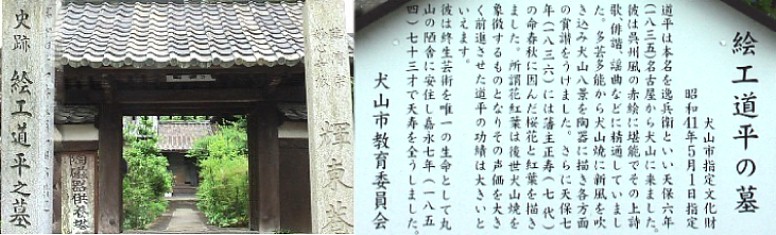 史跡 絵工道平之墓
陶磁器供養塔
輝東菴
絵工道平の墓
犬山市指定文化財
昭和41年5月1日指定
道平は本名を逸兵衛といい天保六年
(一八三五)名古屋から犬山に来ました。
彼は呉州風の赤絵に堪能でその上詩
歌、俳諧、謡曲などに精通していまし
た。多芸多能から犬山焼に新風を吹
き込み犬山八景を陶器に描き各方面
の賞讃をうけました。さらに天保七
年(一八三六)には藩主正寿(七代)
の命春秋に因んだ桜花と紅葉を描き
ました。所謂花紅葉は後世犬山焼を
象徴するものとなりその声価を大き
く前進させた道平の功績は大きいと
いえます。
彼は終生芸術を唯一の生命として丸
山の陋舎に安住し嘉永七年(一八五
四)七十三才で天寿を全うしました。
犬山市教育委員会